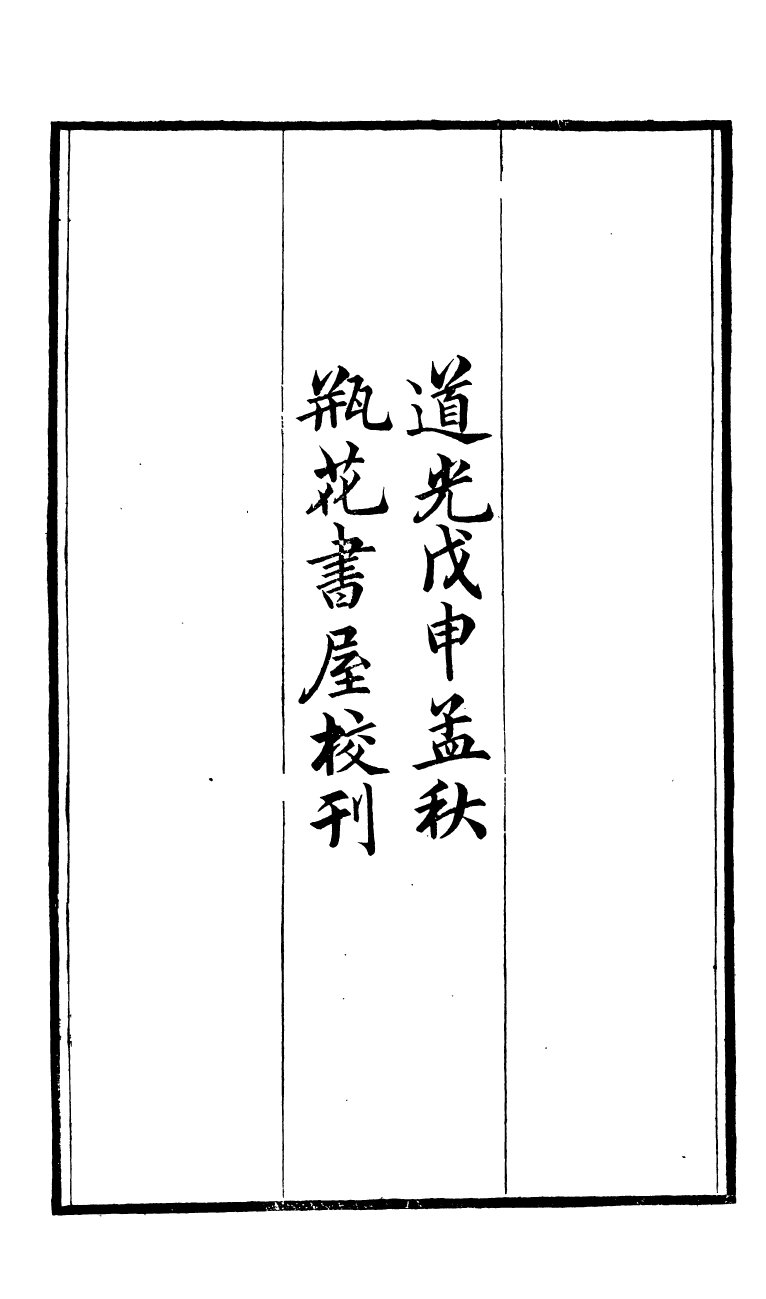 道光戊申孟秋
瓶花書屋校刊